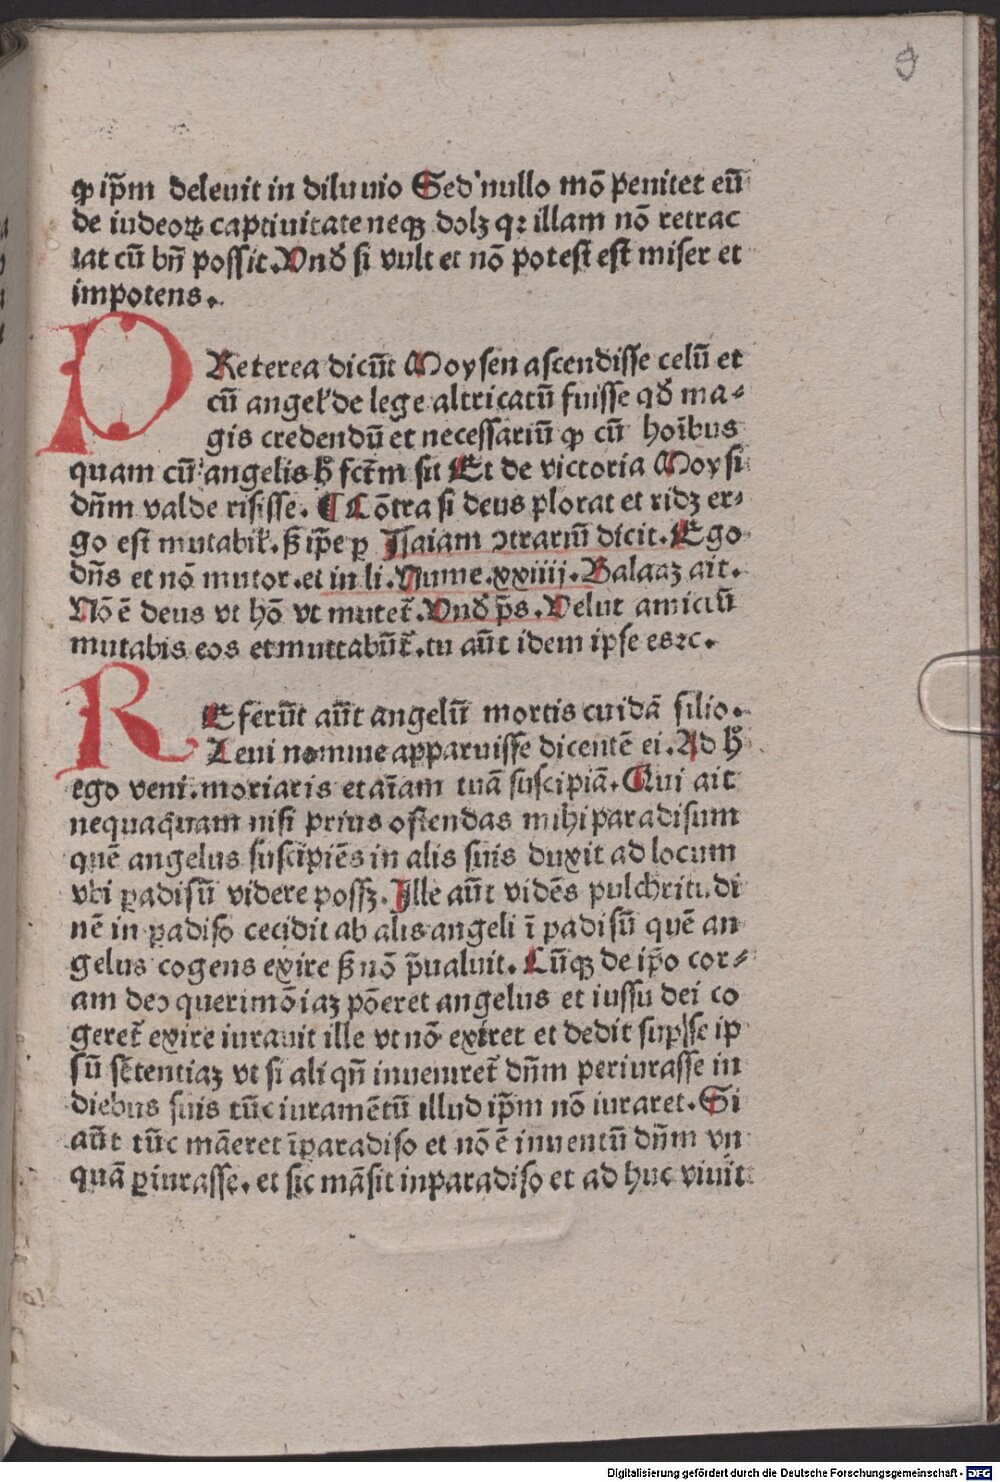 9
ꝙ ip̄m deleuit in diluuio Sed nullo mō penitet eū
de iudeoꝝ captiuitate neqꝫ dolꝫ qꝛ illam nō retrac
tat cū bn̄ possit. Vnð si vult et nō potest est miser et
impotens.
PReterea dicūt Moysen ascendisse celū et
cū angel' de lege altricatū fuisse qð ma⸗
gis credendū et necessariū ꝙ cū hoībus
quam cū angelis h̄ fctm̄ sit Et de victoria Moysi
dn̄m valde risisse. ¶ Cōtra si deus plorat et ridꝫ er⸗
go est mutabil'. ß ip̄e ꝑ Isaiam ↄtrariū dicit. Ego
dn̄s et nō mutor. et in li. Nume. xxiiij. Balaaꝫ ait.
Nō ē deus vt hō vt mutet̄. Vnð p̄s. Velut amictū
mutabis eos et muttabūt̄. tu aūt idem ipse es ⁊c.
REferūt aūt angelū mortis cuidā filio.
Leui nomine apparuisse dicentē ei. Ad h̄
ego veni. moriaris et aīam tuā suscipiā. Qui ait
nequaquam nisi prius ostendas mihi paradisum
quē angelus suscipiēs in alis suis duxit ad locum
vbi ꝑadisū videre possꝫ. Ille aūt vidēs pulchritudi
nē in ꝑadiso cecidit ab alis angeli ī padisū quē an
gelus cogens exire ß nō p̄ualuit. Cūqꝫ de ip̄o cor⸗
am deo querimōiaꝫ pōeret angelus et iussu dei co
geret̄ exire iurauit ille vt nō exiret et dedit supse ip
sū sētentiaꝫ vt si ali qn̄ inueniret̄ dn̄m periurasse in
diebus suis tūc iuramētū illud ip̄m nō iuraret. Si
aūt tūc māeret īparadiso et nō ē inuentū dn̄m vn
quā ꝑiurasse. et sic māsit inparadiso et ad huc viuit
Digitalisierung gefördert durch die Deutsche Forschungsgemeinschaft - DFG